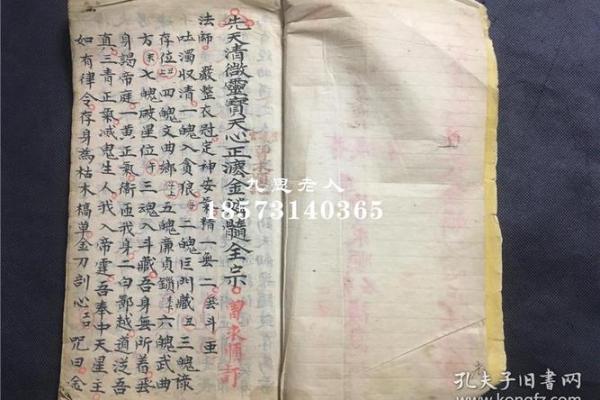 先天清微靈寶天心正法金科玉髓全宗
曾永順訂
法師 嚴整衣冠定神安氣精一炁二炁斗亜
吐濁収清一魄入貪狼 二魄巨門藏 三魄祿
存位 四魄文曲鄉 五魄廉貞鎖 六魄武曲
方 七魄破星位 三魂入斗藏吾身無所着炁
身謁帝庭一黃正氣衛匝我身二白鄷越道泛吾
真三青正氣滅鬼生人我入帝霆吾奉中天星主
如有律令存身為枯木槁草金刀剖心 咒曰念
九思老人
18573140365
孔夫子旧書网
www.kongfz.com